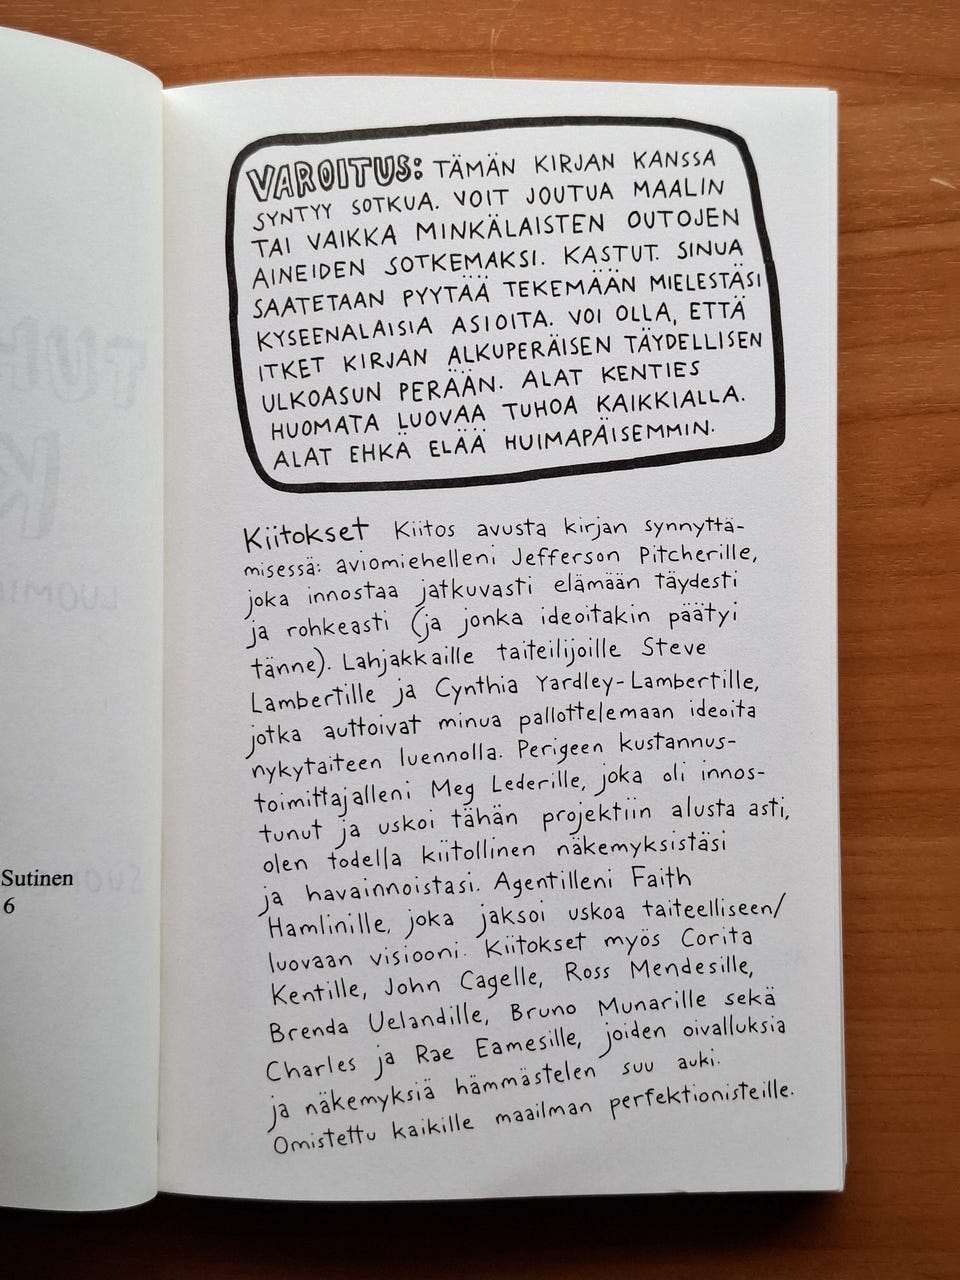 Sutinen
6
VAROITUS: TÄMÄN KIRJAN KANSSA
SYNTYY SOTKUA. VOIT JOUTUA MAALIN
TAI VAIKKA MINKÄLAISTEN OUTOJEN
AINEIDEN SOTKEMAKSI. KASTUT. SINUA
SAATETAAN PYYTÄÄ TEKEMÄÄN MIELESTÄSI
KYSEENALAISIA ASIOITA. VOI OLLA, ETTÄ
ITKET KIRJAN ALKUPERÄISEN TÄYDELLISEN
ULKOASUN PERÄÄN. ALAT KENTIES
HUOMATA LUOVAA TUHOA KAIKKIALLA.
ALAT EHKÄ ELÄÄ HUIMAPÄISEMMIN.
Kiitokset Kiitos avusta kirjan synnyttä-
misessä: aviomiehelleni Jefferson Pitcherille,
joka innostaa jatkuvasti elämään täydesti
ja rohkeasti (ja jonka ideoitakin päätyi
tänne). Lahjakkaille taiteilijoille Steve
Lambertille ja Cynthia Yardley-Lambertille,
jotka auttoivat minua pallottelemaan ideoita
nykytaiteen luennolla. Perigeen kustannus-
toimittajalleni Meg Lederille, joka oli innos-
tunut ja uskoi tähän projektiin alusta asti,
olen todella kiitollinen näkemyksistäsi
ja havainnoistasi. Agentilleni Faith
Hamlinille, joka jaksoi uskoa taiteelliseen/
luovaan visiooni. Kiitokset myös Corita
Kentille, John Cagelle, Ross Mendesille,
Brenda Uelandille, Bruno Munarille sekä
Charles ja Rae Eamesille, joiden oivalluksia
ja näkemyksiä hämmästelen suu auki.
Omistettu kaikille maailman perfektionisteille.